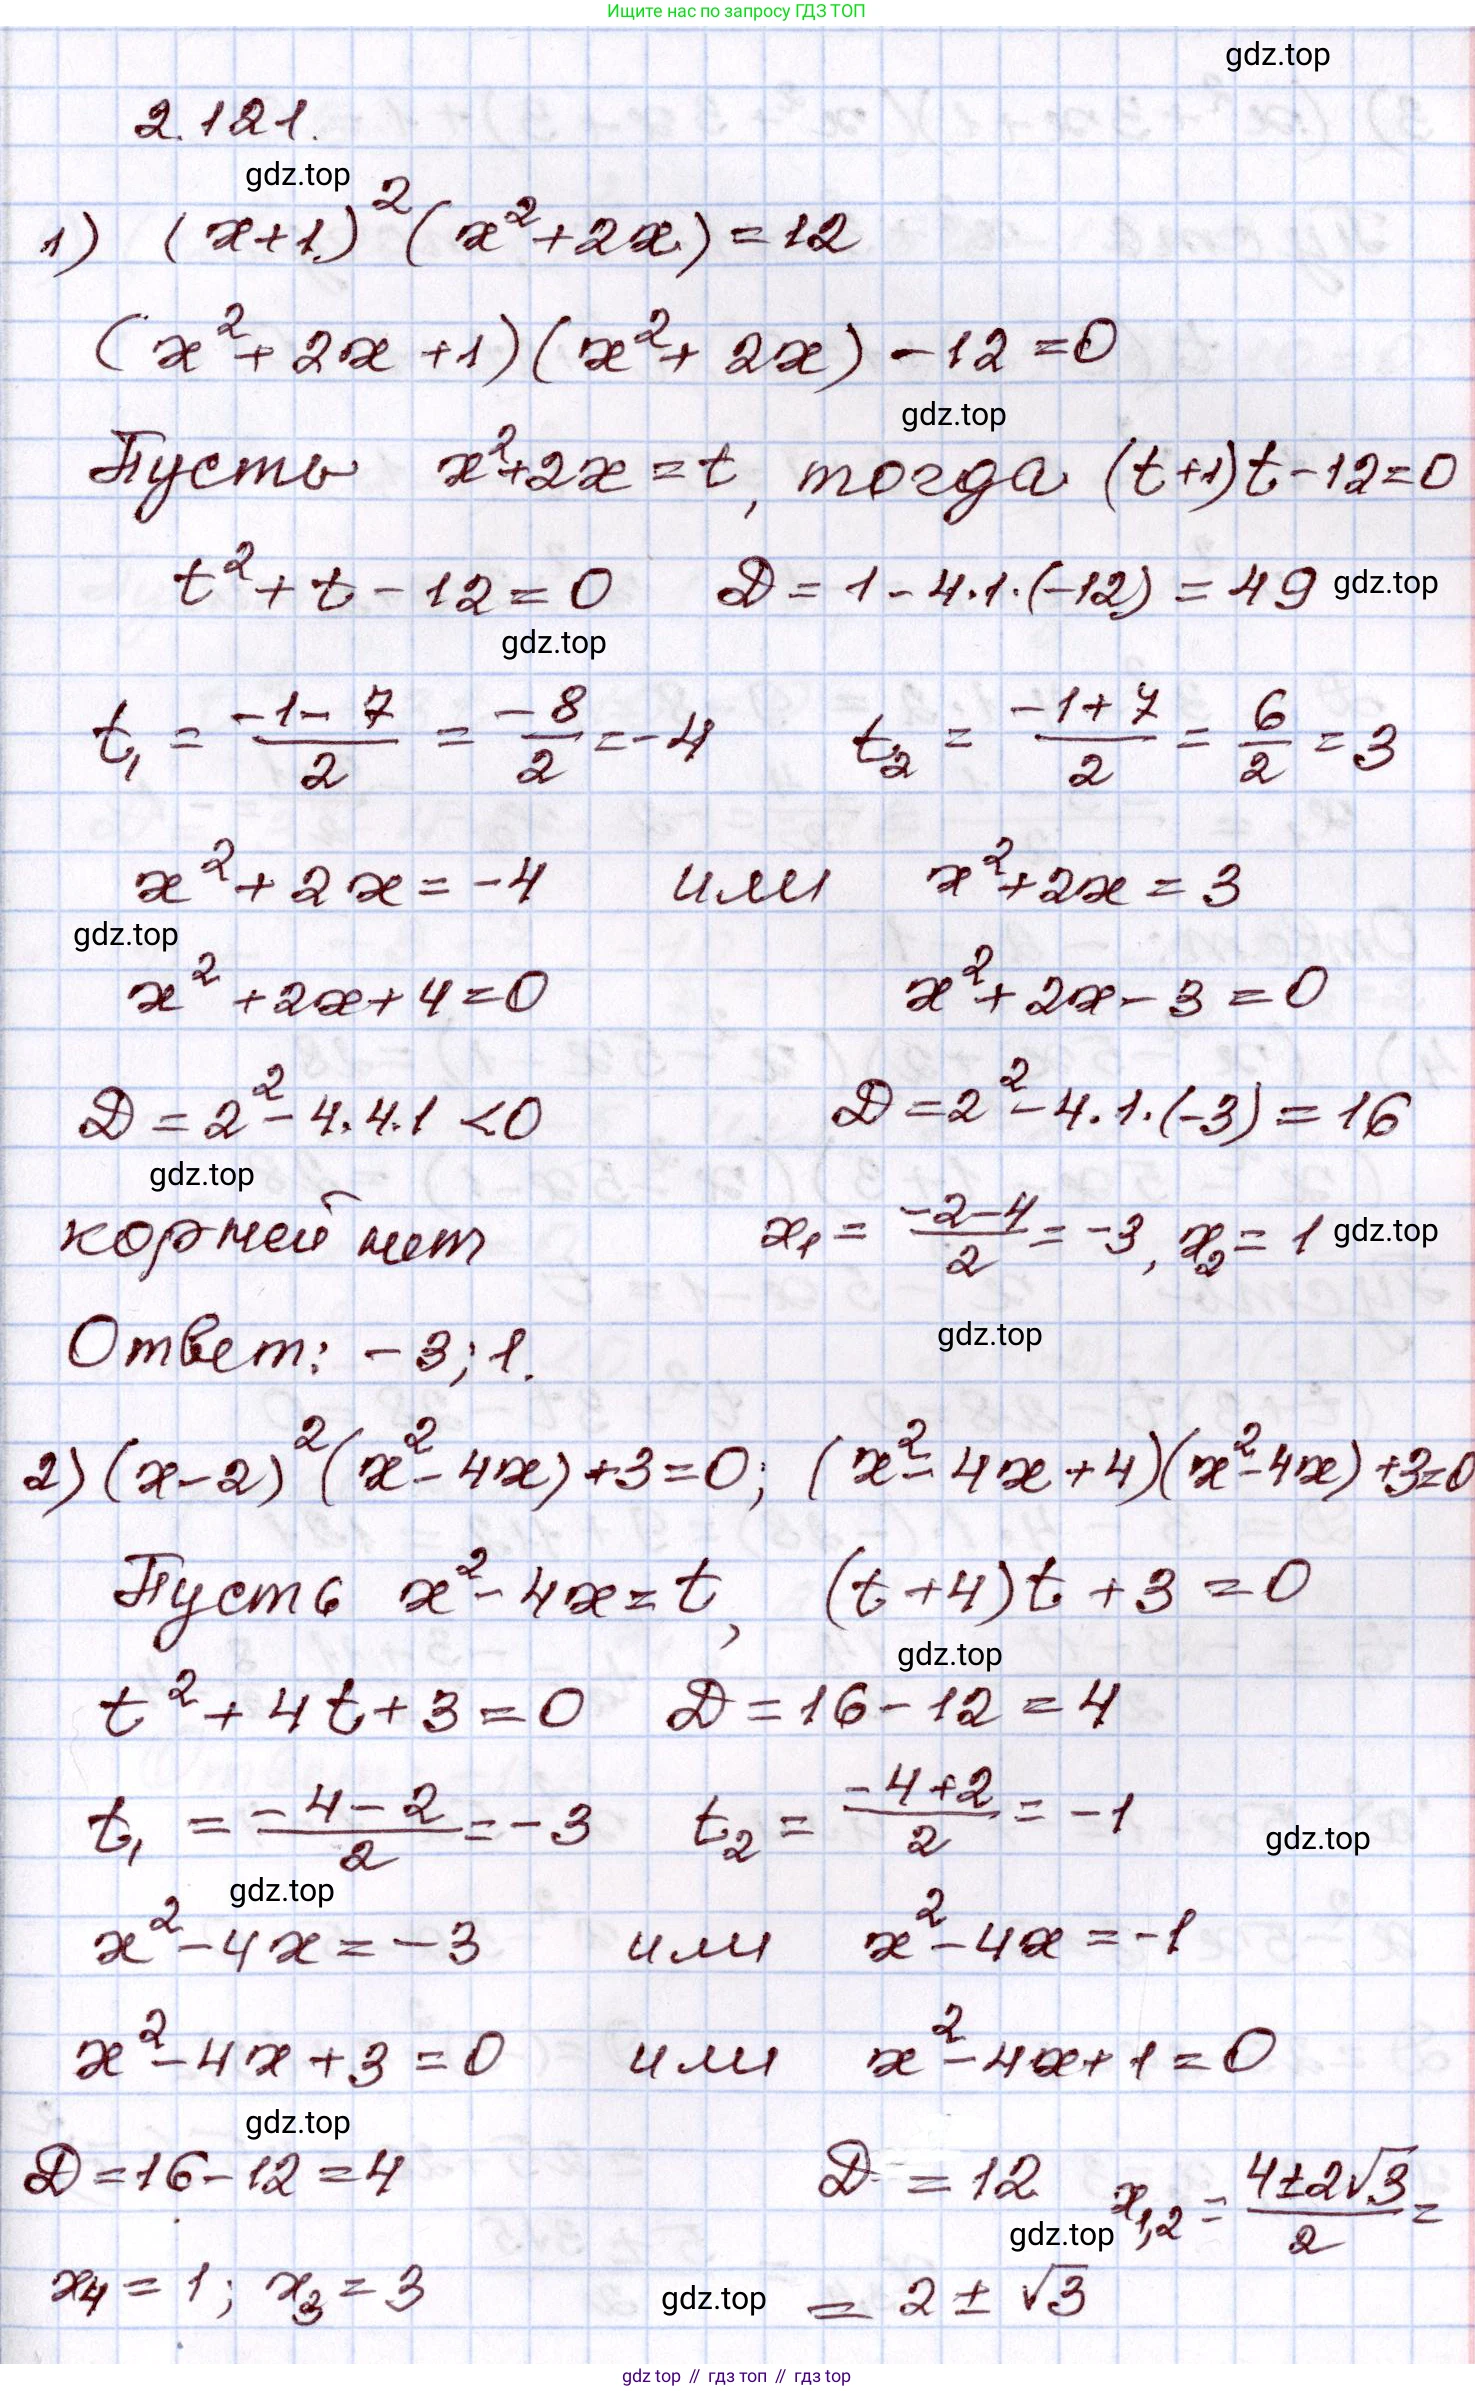 Ищите нас по запросу ГДЗ ТОП
gdz.top
2.121.
gdz.top
1) (x+1)²(x²+2x)=12
(x²+2x+1)(x²+2x)-12=0
gdz.top
Пусть x²+2x=t, тогда (t+1)t-12=0
t²+t-12=0 D=1-4·1·(-12)=49 gdz.top
gdz.top
t₁ = (-1-7)/2 = -8/2 = -4 t₂ = (-1+7)/2 = 6/2 = 3
x²+2x=-4 или x²+2x=3
gdz.top
x²+2x+4=0 x²+2x-3=0
D=2²-4·4·1<0 D=2²-4·1·(-3)=16
gdz.top
корней нет x₁ = (-2-4)/2 = -3, x₂ = 1 gdz.top
gdz.top
Ответ: -3; 1.
2) (x-2)²(x²-4x)+3=0; (x²-4x+4)(x²-4x)+3=0
Пусть x²-4x=t, (t+4)t+3=0
gdz.top
t²+4t+3=0 D=16-12=4
t₁ = (-4-2)/2 = -3 t₂ = (-4+2)/2 = -1
gdz.top
gdz.top
x²-4x=-3 или x²-4x=-1
x²-4x+3=0 или x²-4x+1=0
gdz.top
D=16-12=4 D=12 x₁,₂ = (4±2√3)/2 =
gdz.top
x₄=1; x₃=3 gdz.top = 2±√3
gdz top // гдз топ // gdz top